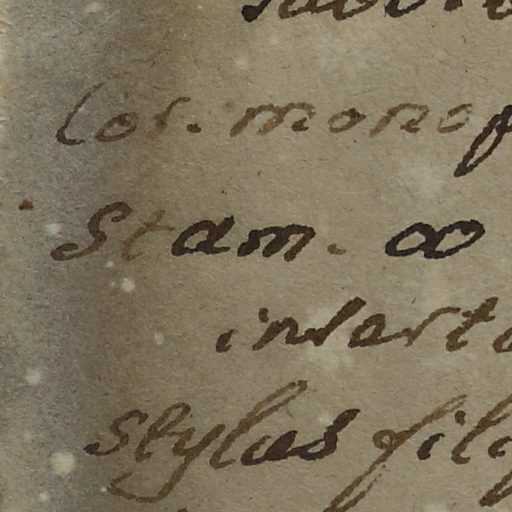 Cor. monop
Stam. ∞
inserta
stylus fili